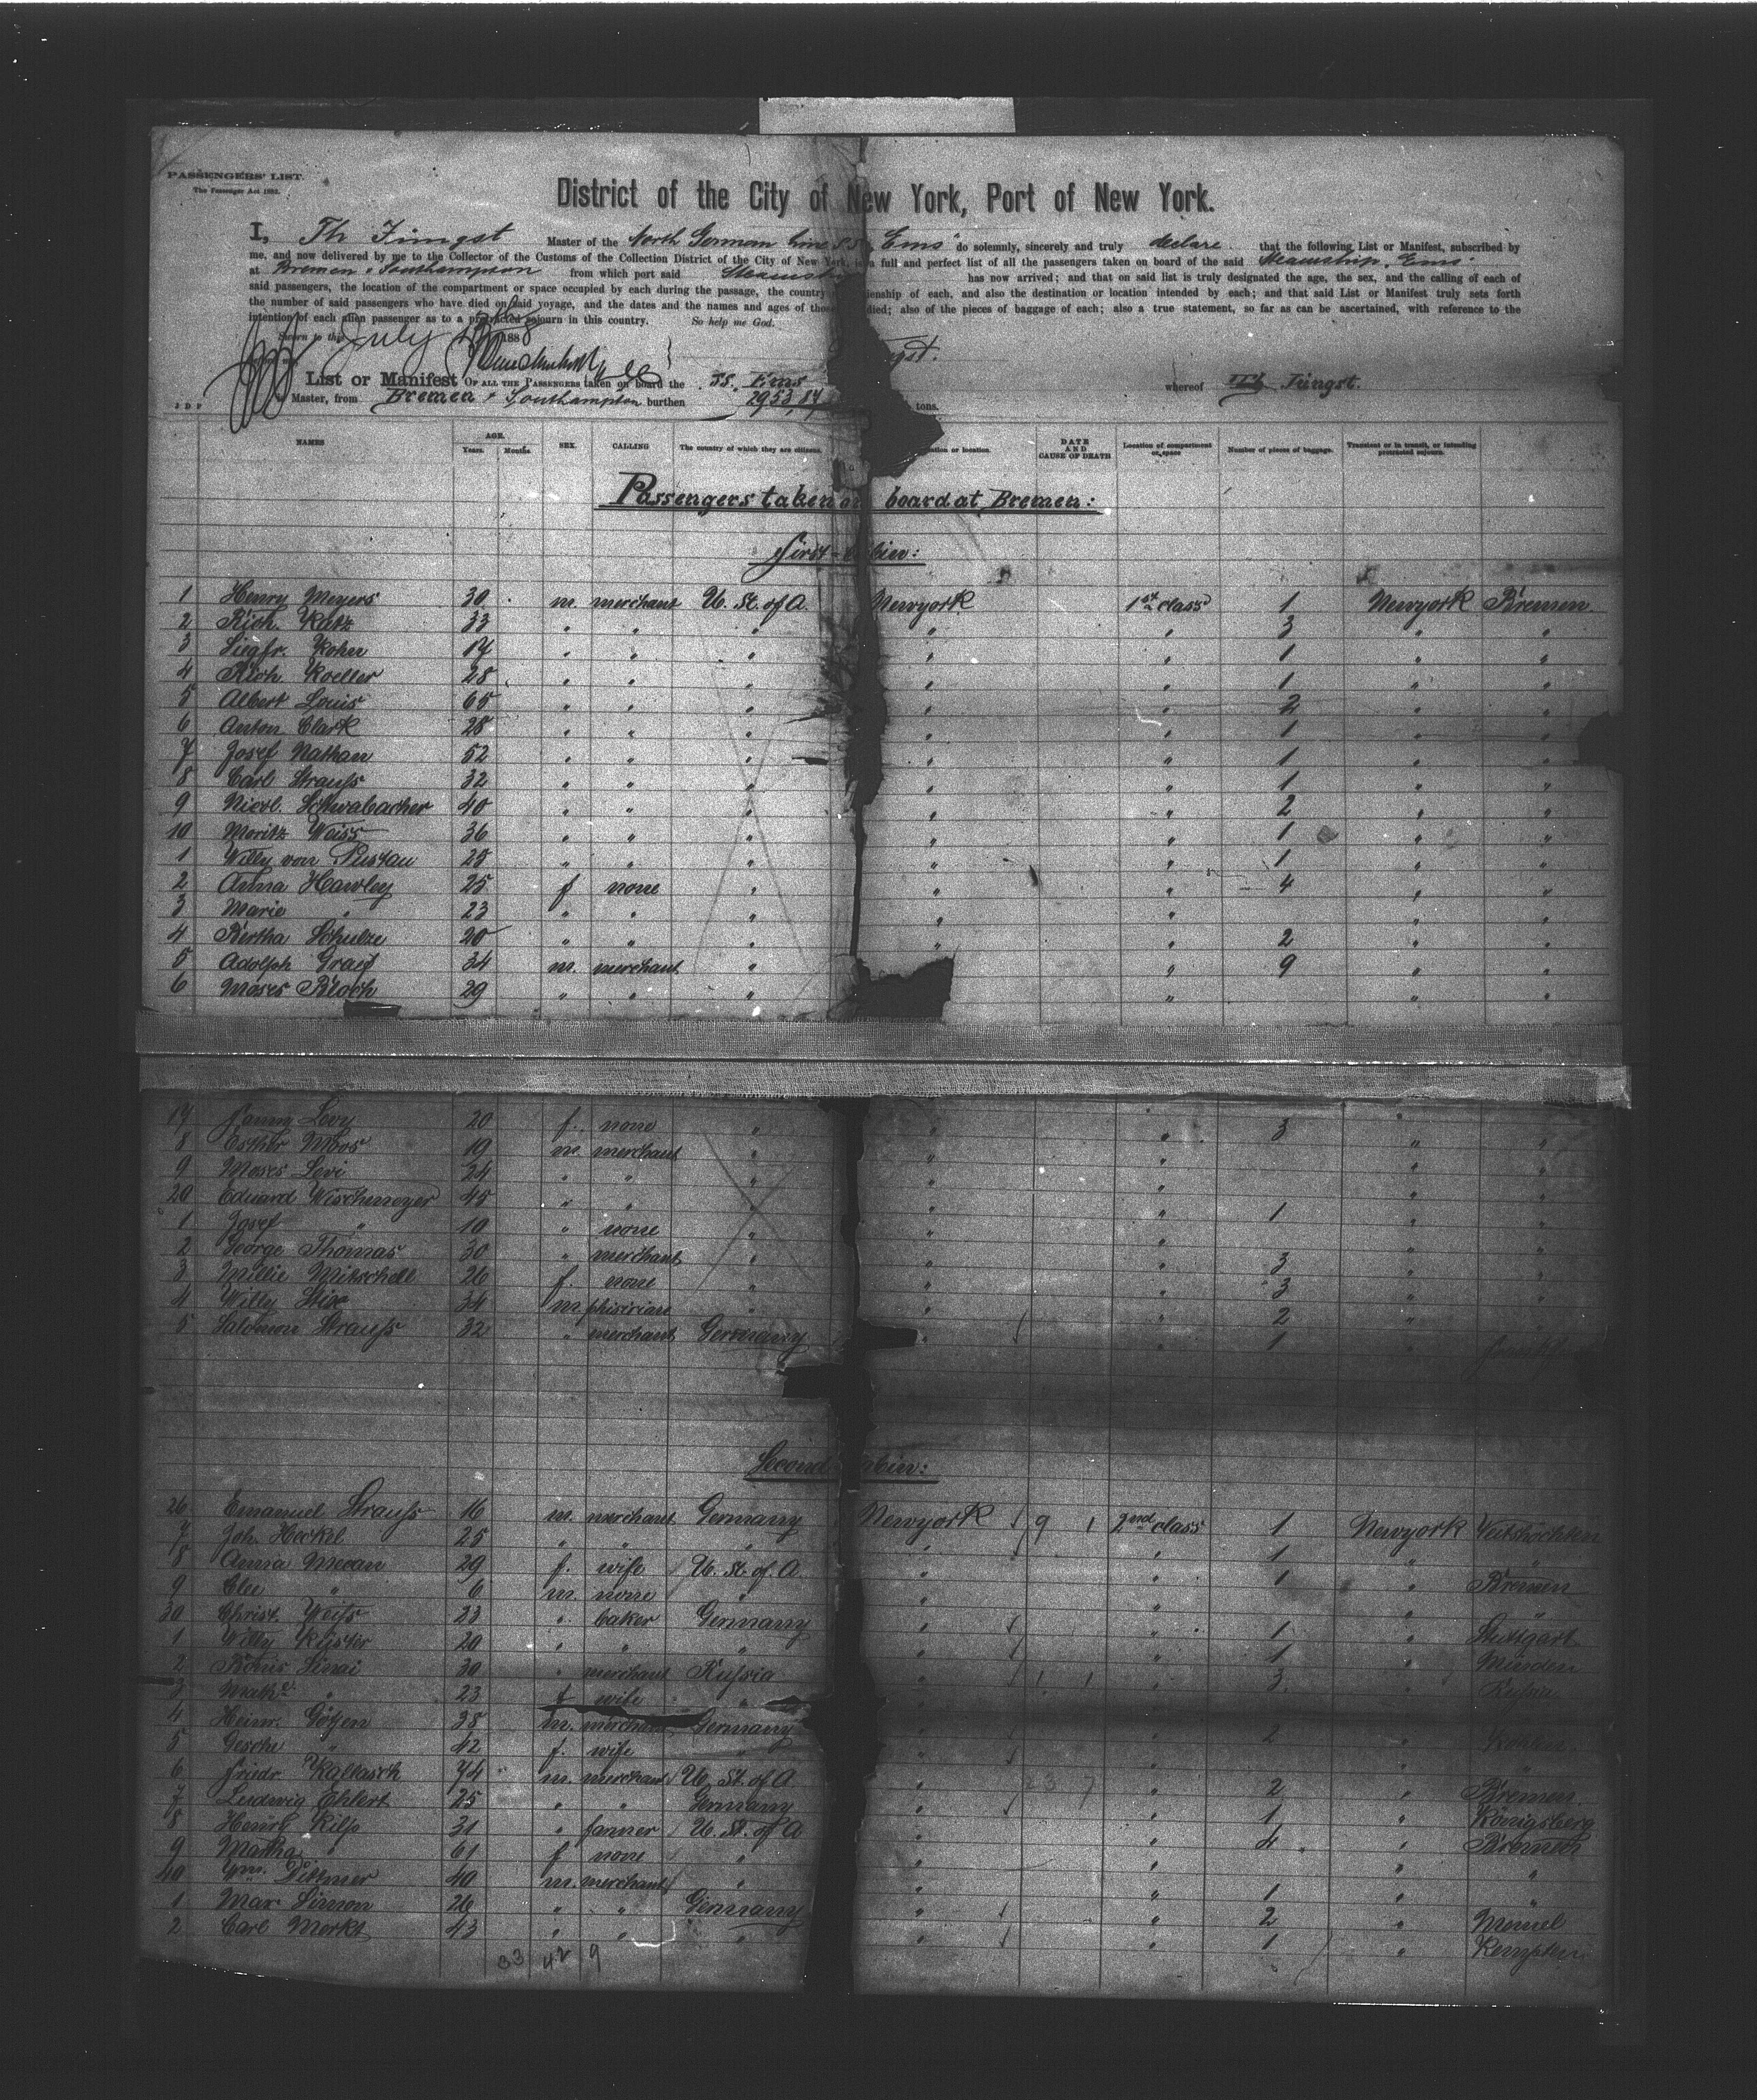 PASSENGERS' LIST.
The Passenger Act 1882.
District of the City of New York, Port of New York.
I, Th Jüngst Master of the North German Line SS "Ems" do solemnly, sincerely and truly declare that the following List or Manifest, subscribed by
me, and now delivered by me to the Collector of the Customs of the Collection District of the City of New York, is a full and perfect list of all the passengers taken on board of the said Steamship "Ems"
at Bremen & Southampton from which port said Steamship has now arrived; and that on said list is truly designated the age, the sex, and the calling of each of
said passengers, the location of the compartment or space occupied by each during the passage, the country of citizenship of each, and also the destination or location intended by each; and that said List or Manifest truly sets forth
the number of said passengers who have died on said voyage, and the dates and the names and ages of those died; also of the pieces of baggage of each; also a true statement, so far as can be ascertained, with reference to the
intention of each alien passenger as to a protracted sojourn in this country. So help me God.
Sworn to this July 1888
List or Manifest OF ALL THE PASSENGERS taken on board the SS. Ems whereof Th Jüngst.
is Master, from Bremen & Southampton burthen 2953,84 tons.
J D P
NAMES AGE. Years. Months. SEX. CALLING The country of which they are citizens. location. DATE AND CAUSE OF DEATH Location of compartment or space Number of pieces of baggage. Transient or in transit, or intending protracted sojourn.
Passengers taken on board at Bremen:
First-Cabin:
1 Henry Meyers 30 m. merchant U. St. of A. Newyork 1st class 1 Newyork Bremen
2 Rich. Katz 33 " " " " " 3 " "
3 Siegfr. Kohn 17 " " " " " 1 " "
4 Rich. Koeller 28 " " " " " 1 " "
5 Albert Louis 65 " " " " " 2 " "
6 Anton Clark 28 " " " " " 1 " "
7 Josef Nathan 52 " " " " " 1 " "
8 Carl Strauß 32 " " " " " 1 " "
9 Nicol. Schwabacher 40 " " " " " 2 " "
10 Moritz Weiss 36 " " " " " 1 " "
1 Willy von Pustau 25 " " " " " 1 " "
2 Anna Hawley 25 f none " " " 4 " "
3 Marie " 23 " " " " " " "
4 Bertha Schulze 20 " " " " " 2 " "
5 Adolph Graef 34 m. merchant " " 9 " "
6 Moses Bloch 29 " " " " " "
17 Fanny Levy 20 f. none " " " 3 " "
8 Esther Moos 19 m merchant " " " " "
9 Moses Levi 24 " " " " " " "
20 Eduard Wischmeyer 45 " " " " " 1 " "
1 Josef " 10 " none " " " " "
2 George Thomas 30 " merchant " " " 3 " "
3 Millie Mitschell 26 f. none " " " 3 " "
4 Willy Stix 34 m. phisician " " " 2 " "
5 Salomon Strauß 32 " merchant Germany " " 1 "
Second Cabin:
26 Emanuel Strauß 16 m. merchant Germany Newyork 9 1 2nd class 1 Newyork Veitshöchten
7 Joh. Heckel 25 " " " " " 1 " "
8 Anna Mecan 29 f. wife U. St. of A. " " 1 " Bremen
9 Clee " 6 m. none " " " " "
30 Christ. Weiß 23 " baker Germany " " 1 " Stuttgart
1 Willy Küster 20 " " " " " 1 " Minden
2 Boris Sinai 30 " merchant Rußia " 1 1 " 3 " Rußia
3 Mathe " 23 f wife " " " "
4 Heinr. Götzen 38 m. merchant Germany " " 2 "
5 Gesche " 42 f. wife " " " " "
6 Friedr. Kallasch 74 m. merchant U. St. of A. " 23 7 " 2 " Bremen
7 Ludwig Ehlert 25 " " Germany " " 1 " Königsberg
8 Henry Kilp 31 " farmer U. St. of A " " 4 " Bremen
9 Martha " 61 f none " " " " "
40 Wm. Dittmer 40 m. merchant " " " 1 " "
1 Max Simon 26 " " Germany " " 2 " Memel
2 Carl Merkt 43 " " " " " 1 " Kempten
33 42 9